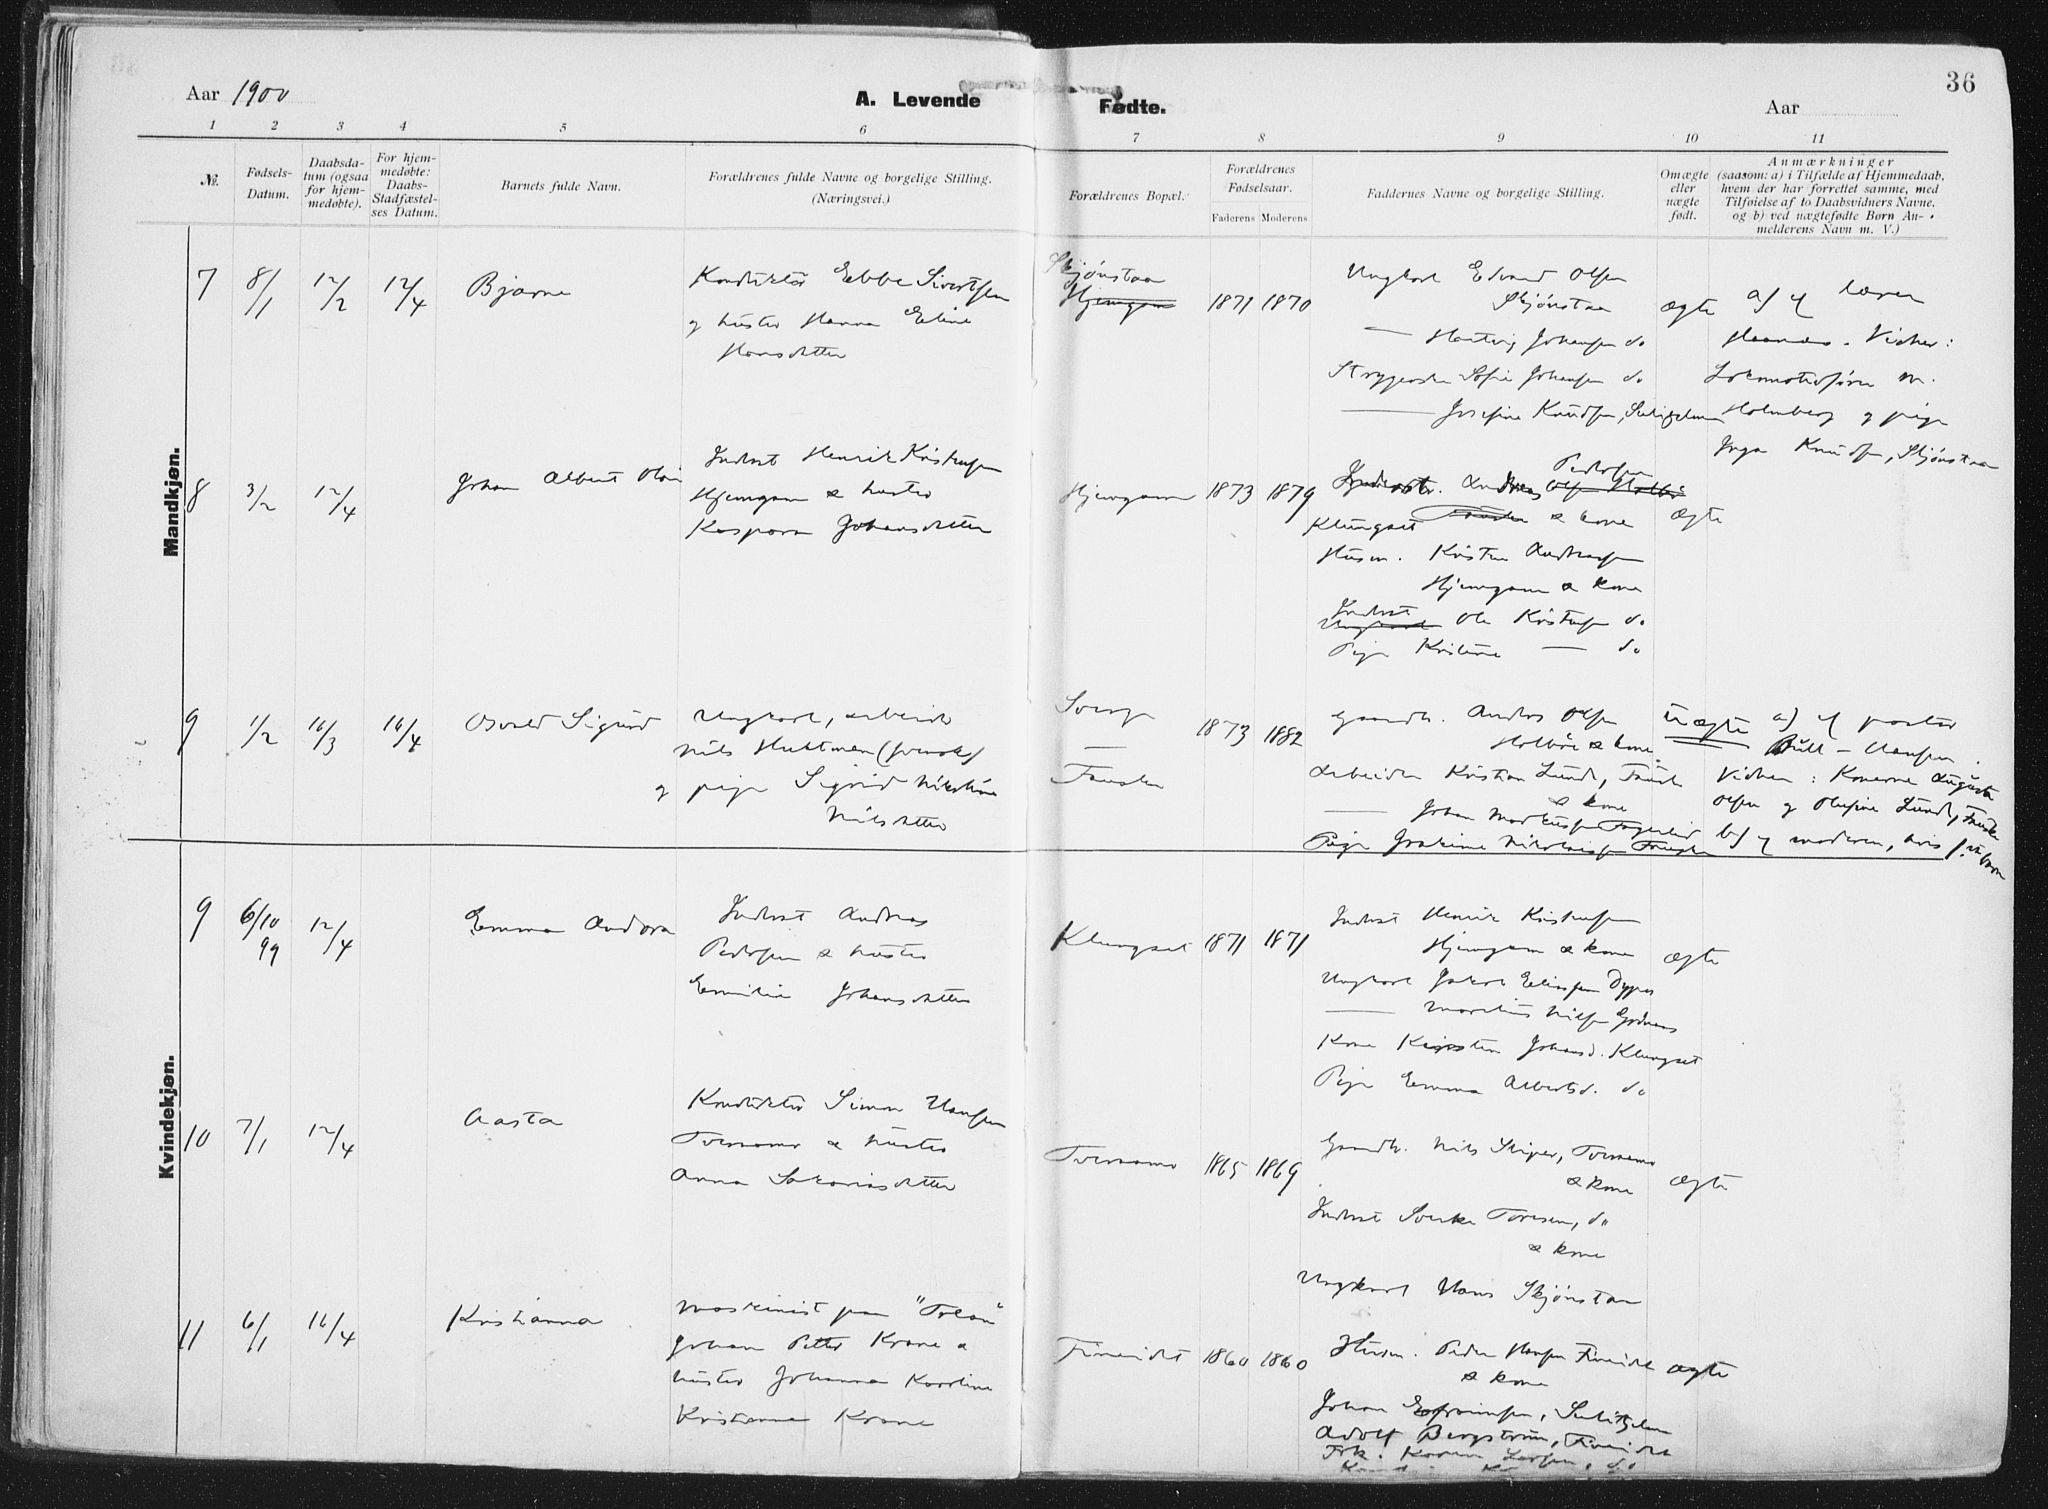 Aar 1900
A. Levende
Fødte.
Aar
36
1 2 3 4 5 6 7 8 9 10 11
№.
Fødsels-
Datum.
Daabsda-
tum (ogsaa
for hjem-
medøbte).
For hjem-
medøbte:
Daabs-
Stadfæstel-
ses Datum.
Barnets fulde Navn.
Forældrenes fulde Navne og borgelige Stilling.
(Næringsvei.)
Forældrenes Bopæl.
Forældrenes
Fødselsaar.
Faderens Moderens
Faddernes Navne og borgelige Stilling.
Omægte
eller
uægte
født.
Anmærkninger
(saasom: a) i Tilfælde af Hjemmedaab,
hvem der har forrettet samme, med
Tilføielse af to Daabsvidners Navne,
og b) ved uægtefødte Børn An-
melderens Navn m. V.)
Mandkjøn.
7 8/1 12/2 12/4 Bjarne
Konduktør Ebbe Sivertsen
og hustru Hanna Eline
Hansdatter
Skjønstaa
Hjemgam
1871 1870
Ungkarl Edvard Olsen
Skjønstaa
— Hartvig Johansen do
Sofie Johansen do
— Josefine Knudsen, Sulitjelma
ægte
a) af lærer
Vidner:
Lokomotivfører M.
Holmberg og pige
Inga Knudsen, Skjønstaa
8 3/2 12/4 Johan Albert
Inderst Henrik Kristensen
Hjemgam & hustru
Kaspara Johansdatter
Hjemgam 1873 1879
Pedersen
Inderst. Andreas Olsen Holbø
Klungset Fauske & kone
Husm. Kristen Andreassen
Hjemgam & kone
Inderst
Ungkarl Ole Kristensen do
Pige Kristine — do
ægte
9 1/2 16/3 16/4 Osvald Sigurd
Ungkarl, arbeider
Nils Huttman (svensk)
og pige Sigrid Nikoline
Nilsdatter
Sverige
—
Fauske
1873 1882
Gaardb. Andreas Olsen
Holbø & kone
Arbeider Kristian Lund, Fauske
& kone
— Johan Markussen Fagerlid
Pige Joakime Nikolaisen Fauske
uægte
a) af pastor
Bull-Hansen.
Vidner: Konerne Augusta
Olsen og Olufine Lund, Fauske
b) af moderen, hvis 1. barn
Kvindekjøn.
9 6/10 99 12/4 Emma Andora
Inderst Andreas
Pedersen & hustru
Emilie Johansdatter
Klungset 1871 1871
Inderst Henrik Kristensen
Hjemgam & kone
Ungkarl Jakob Eliassen Dypos
— Marelius Nilsen Godnes
Kone Kirsten Johansd. Klungset
Pige Emma Albertsd. do
ægte
10 7/1 12/4 Aasta
Konduktør Simon Hansen
Tversaamo & hustru
Anna Sakariasdatter
Tversaamo 1865 1869
Gaardb. Nils Skipes, Tversaamo
& kone
Inderst Sverke Toresen, do
& kone
Ungkarl Hans Skjønstaa
ægte
11 6/1 16/4 Kristianna
Maskinist paa "Tolaa"
Johan Petter Krane &
hustru Johanna Karoline
Kristianna Krane
Fineidet 1860 1860
Husm. Peder Hansen Fineidet
& kone
Johan Efraimsen, Sulitjelma
Adolf Bergstrøm, Fineidet
Frk. Karen Larsen, do
ægte